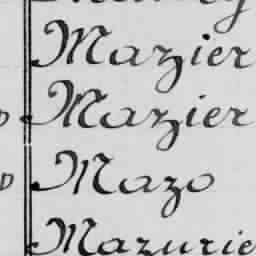 Mazier
Mazier
Mazo
Mazurie